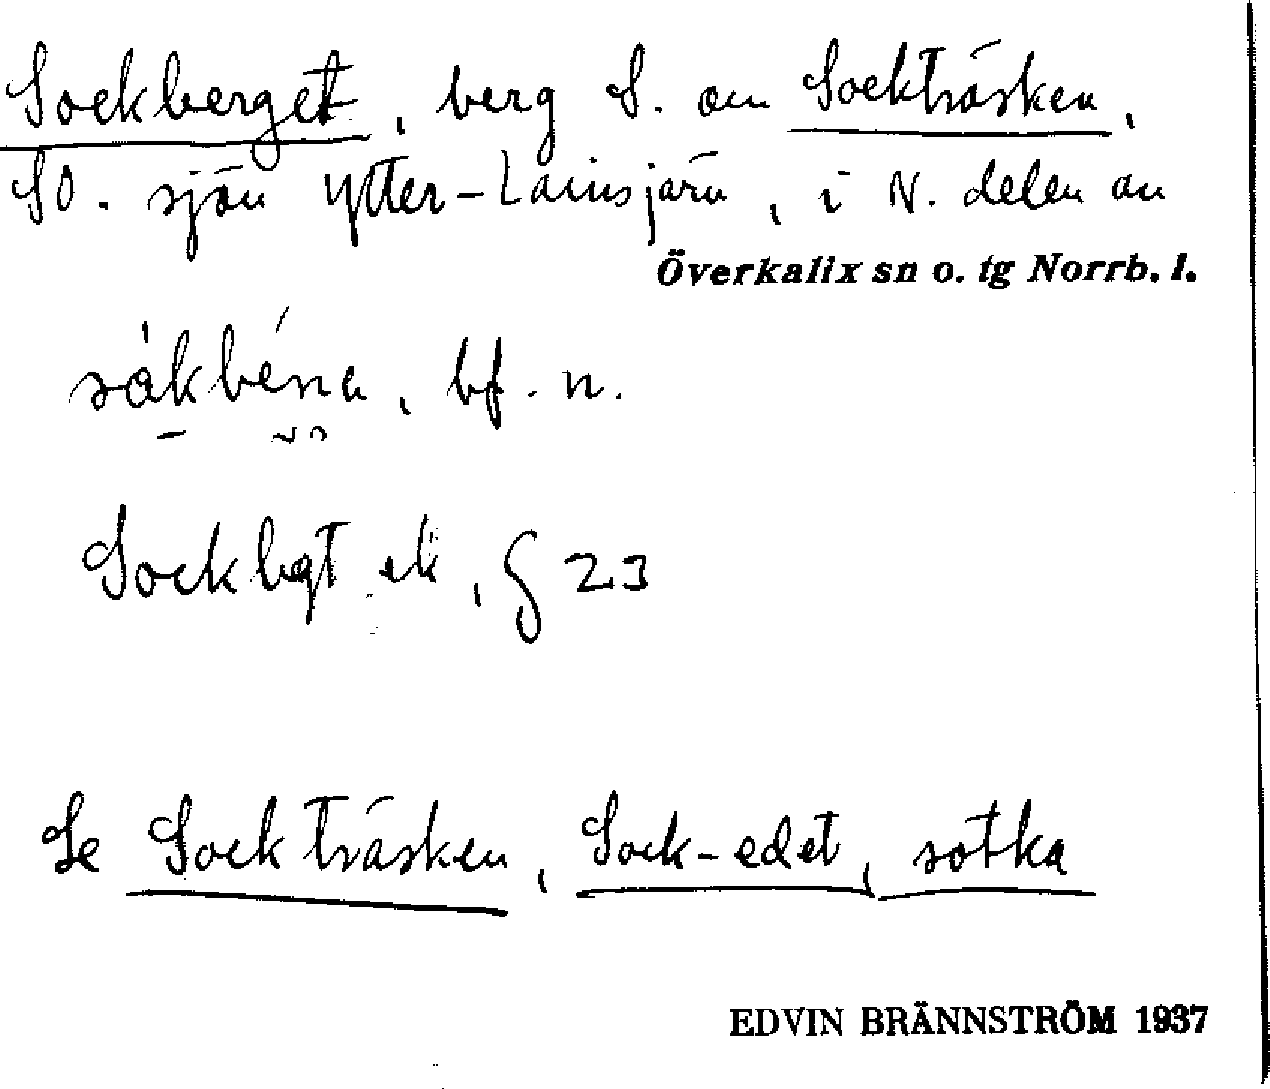 Sockberget, berg S. om Sockträsken,
SO. sjön Ytter-Lainsjärv, i N. delen av
Överkalix sn o. tg Norrb. l.
bf. n.
Sockbgt ek, § 23
Se Sockträsken, Sock-edet, sotka
EDVIN BRÄNNSTRÖM 1937